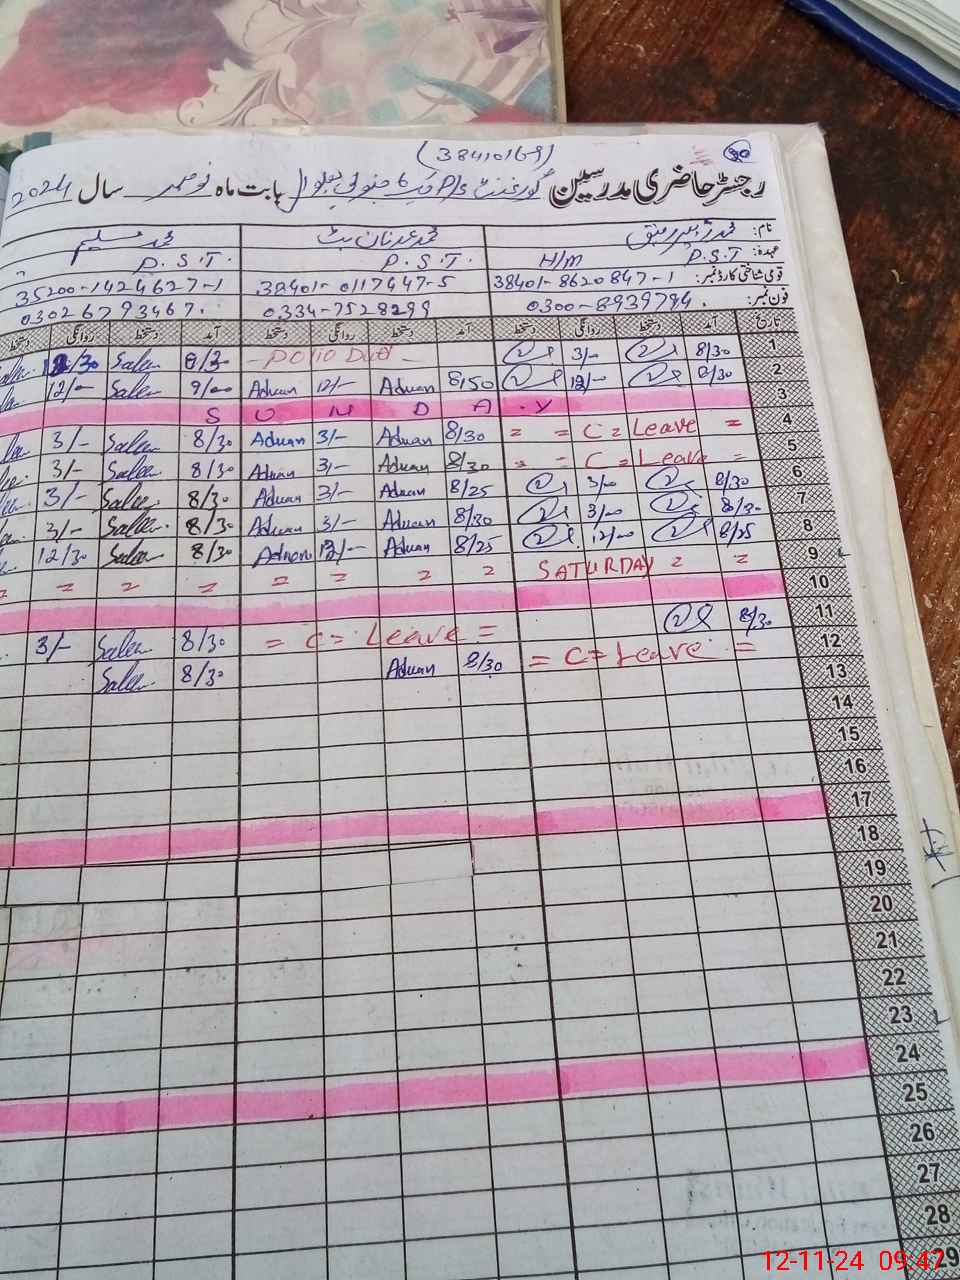 (38410169)
30
رجسٹر حاضری مدرسین گورنمنٹ P/S جنوبی بابت ماہ نومبر سال 2024
نام: محمد محمد عدنان بٹ محمد سلیم
عہدہ: P.S.T H/M P.S.T. P.S.T.
قومی شناختی کارڈ نمبر: 38401-8620847-1 38401-0117447-5 35200-1424627-1
فون نمبر: 0300-8939794. 0334-7528299 0302 6793467.
تاریخ آمد دستخط روانگی دستخط آمد دستخط روانگی دستخط آمد دستخط روانگی دستخط
1 8/30 3/- Polio Duet 8/30 Salee
2 8/30 12/- 8/50 Aduan 12/- Aduan 9/00 Salee 12/-
3 S U N D A Y
4 = C = Leave = 8/30 Aduan 3/- Aduan 8/30 Salee 3/-
5 = C = Leave = 8/30 Aduan 3/- Aduan 8/30 Salee 3/-
6 8/30 3/- 8/25 Aduan 3/- Aduan 8/30 Salee 3/-
7 8/30 3/- 8/30 Aduan 3/- Aduan 8/30 Salee 3/-
8 8/25 12/- 8/25 Aduan 12/- Adnan 8/30 Salee 12/30
9 = = SATURDAY = = = = = = = =
10
11 8/30 = C = Leave = 8/30 Salee 3/-
12 = C = Leave = 8/30 Aduan 8/30 Salee
13
14
15
16
17
18
19
20
21
22
23
24
25
26
27
28
29
12-11-24 09:47